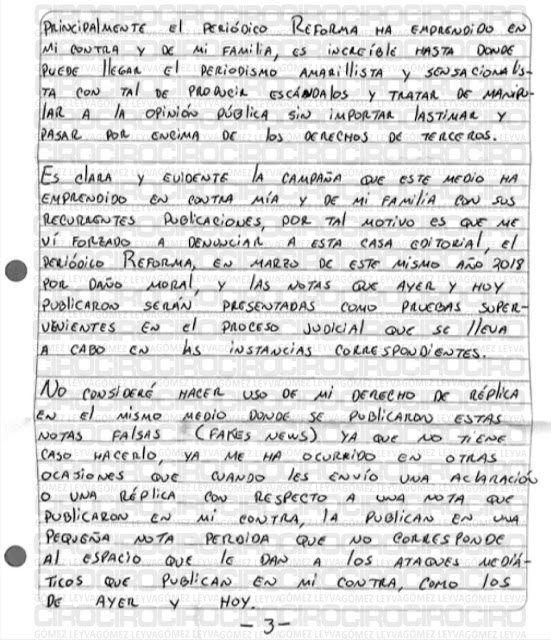 PRINCIPALMENTE El PERIÓDICO REFORMA HA EMPRENDIDO EN
MI CONTRA Y DE MI FAMILIA, ES INCREÍBLE HASTA DONDE
PUEDE LLEGAR El PERIODISMO AMARILLISTA Y SENSACIONALIS-
TA CON TAL DE PRODUCIR ESCÁNDALOS Y TRATAR DE MANIPU-
LAR A LA OPINIÓN PÚBLICA SIN IMPORTAR LASTIMAR Y
PASAR POR ENCIMA DE LOS DERECHOS DE TERCEROS.
ES CLARA Y EVIDENTE LA CAMPAÑA QUE ESTE MEDIO HA
EMPRENDIDO EN CONTRA MÍA Y DE MI FAMILIA CON SUS
RECURRENTES PUBLICACIONES, POR TAL MOTIVO ES QUE ME
VÍ FORZADO A DENUNCIAR A ESTA CASA EDITORIAL, El
PERIÓDICO REFORMA, EN MARZO DE ESTE MISMO AÑO 2018
POR DAÑO MORAL, Y LAS NOTAS QUE AYER Y HOY
PUBLICARON SERÁN PRESENTADAS COMO PRUEBAS SUPER-
VENIENTES EN El PROCESO JUDICIAL QUE SE LLEVA
A CABO EN LAS INSTANCIAS CORRESPONDIENTES.
NO CONSIDERÉ HACER USO DE MI DERECHO DE RÉPLICA
EN El MISMO MEDIO DONDE SE PUBLICARON ESTAS
NOTAS FALSAS (FAKES NEWS) YA QUE NO TIENE
CASO HACERLO, YA ME HA OCURRIDO EN OTRAS
OCASIONES QUE CUANDO LES ENVÍO UNA ACLARACIÓN
O UNA RÉPLICA CON RESPECTO A UNA NOTA QUE
PUBLICARON EN MI CONTRA, LA PUBLICAN EN UNA
PEQUEÑA NOTA PERDIDA QUE NO CORRESPONDE
Al ESPACIO QUE LE DAN A LOS ATAQUES MEDIÁ-
TICOS QUE PUBLICAN EN MI CONTRA, COMO LOS
DE AYER Y HOY.
-3-